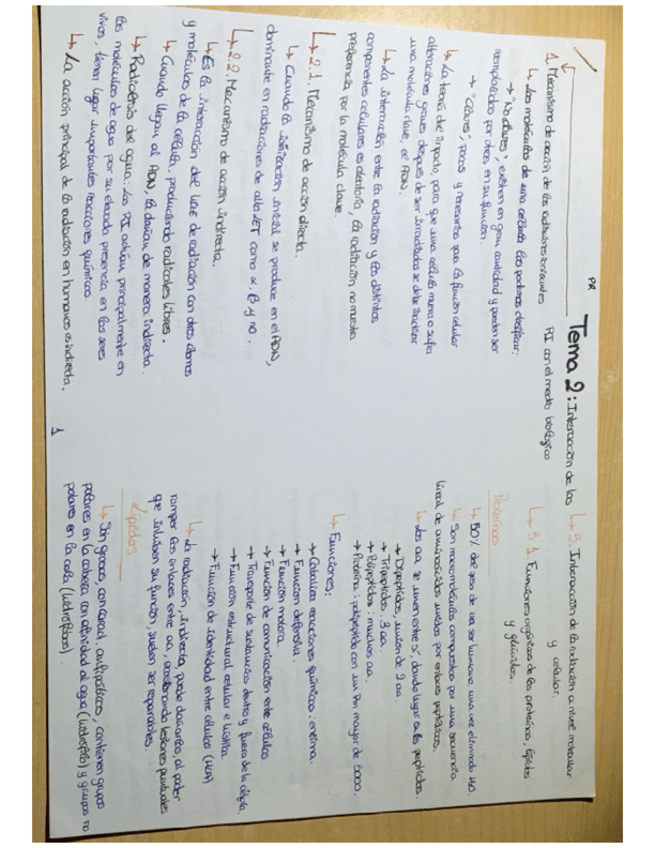 PR
Tema 2: Interacción de las
RI con el medio biológico
1. Mecanismo de acción de las radiaciones ionizantes
↳ Las moléculas de una célula las podemos clasificar:
→ "No claves", existen en gran cantidad y pueden ser
reemplazadas por otras en su función.
→ "Claves", pocas y necesarias para la función celular
↳ La teoría del impacto, para que una célula muera o sufra
alteraciones graves después de ser irradiada se debe inactivar
una molécula clave, el ADN.
↳ La interacción entre la radiación y los distintos
componentes celulares es aleatoria, la radiación no muestra
preferencia por la molécula clave.
↳ 2.1. Mecanismo de acción directa.
↳ Cuando la ionización inicial se produce en el ADN,
dominante en radiaciones de alta LET como α, β y no.
↳ 2.2. Mecanismo de acción indirecta.
↳ Es la interacción del haz de radiación con otros átomos
y moléculas de la célula, produciendo radicales libres.
↳ Cuando llegan al ADN, la dañan de manera indirecta.
↳ Radiolisis del agua: las RI actúan principalmente en
las moléculas de agua por su elevada presencia en los seres
vivos, tienen lugar importantes reacciones químicas
↳ La acción principal de la radiación en humanos es indirecta.
1
↳ 3. Interacción de la radiación a nivel molecular
y celular.
↳ 3.1. Funciones orgánicas de las proteínas, lípidos
y glúcidos.
Proteínas
↳ 50% del peso de un ser humano una vez eliminado H2O.
↳ Son macromoléculas compuestas por una secuencia
lineal de aminoácidos unidos por enlaces peptídicos.
↳ Los aa se unen entre sí, dando lugar a los péptidos.
→ Dipéptidos, unión de 2 aa.
→ Tripéptidos, 3 aa.
→ Polipéptidos: muchos aa.
→ Proteína: polipéptido con un Pm mayor de 5000.
↳ Funciones:
→ Cataliza reacciones químicas: enzima.
→ Función defensiva.
→ Función motora
→ Función de comunicación entre células
→ Transporte de sustancias dentro y fuera de la célula.
→ Función estructural celular e hística.
→ Función de identidad entre células (HLA)
↳ La radiación, indirecta, puede dañarlas, al poder
romper los enlaces entre aa, ocasionando lesiones puntuales
que influyen su función, suelen ser reparables.
Lípidos
↳ Son grasas, con canal: anfipáticas, contienen grupos
polares en la cabeza con afinidad al agua (hidrófilos) y grupos no
polares en la cola (hidrófobos).